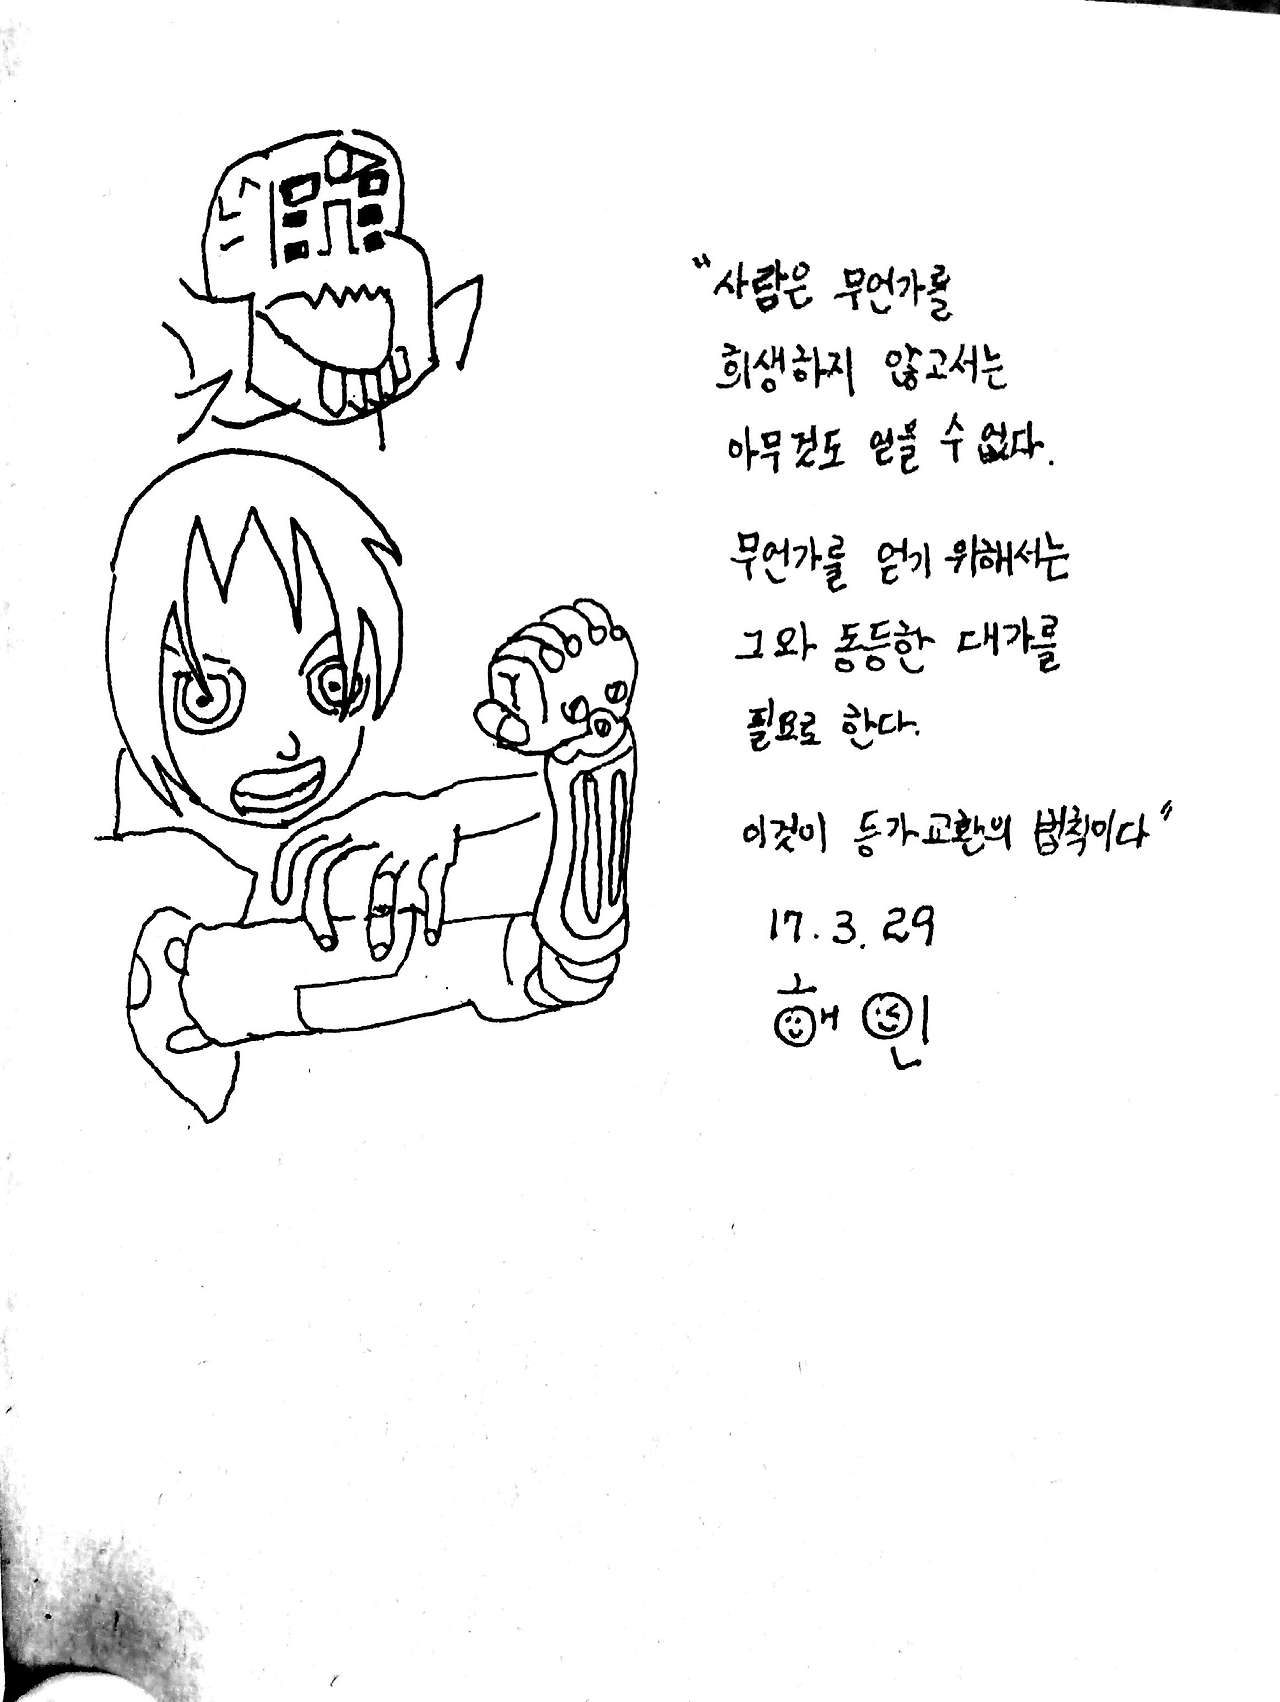 "사람은 무언가를
희생하지 않고서는
아무것도 얻을 수 없다.
무언가를 얻기 위해서는
그와 동등한 대가를
필요로 한다.
이것이 등가교환의 법칙이다"
17. 3. 29
해인